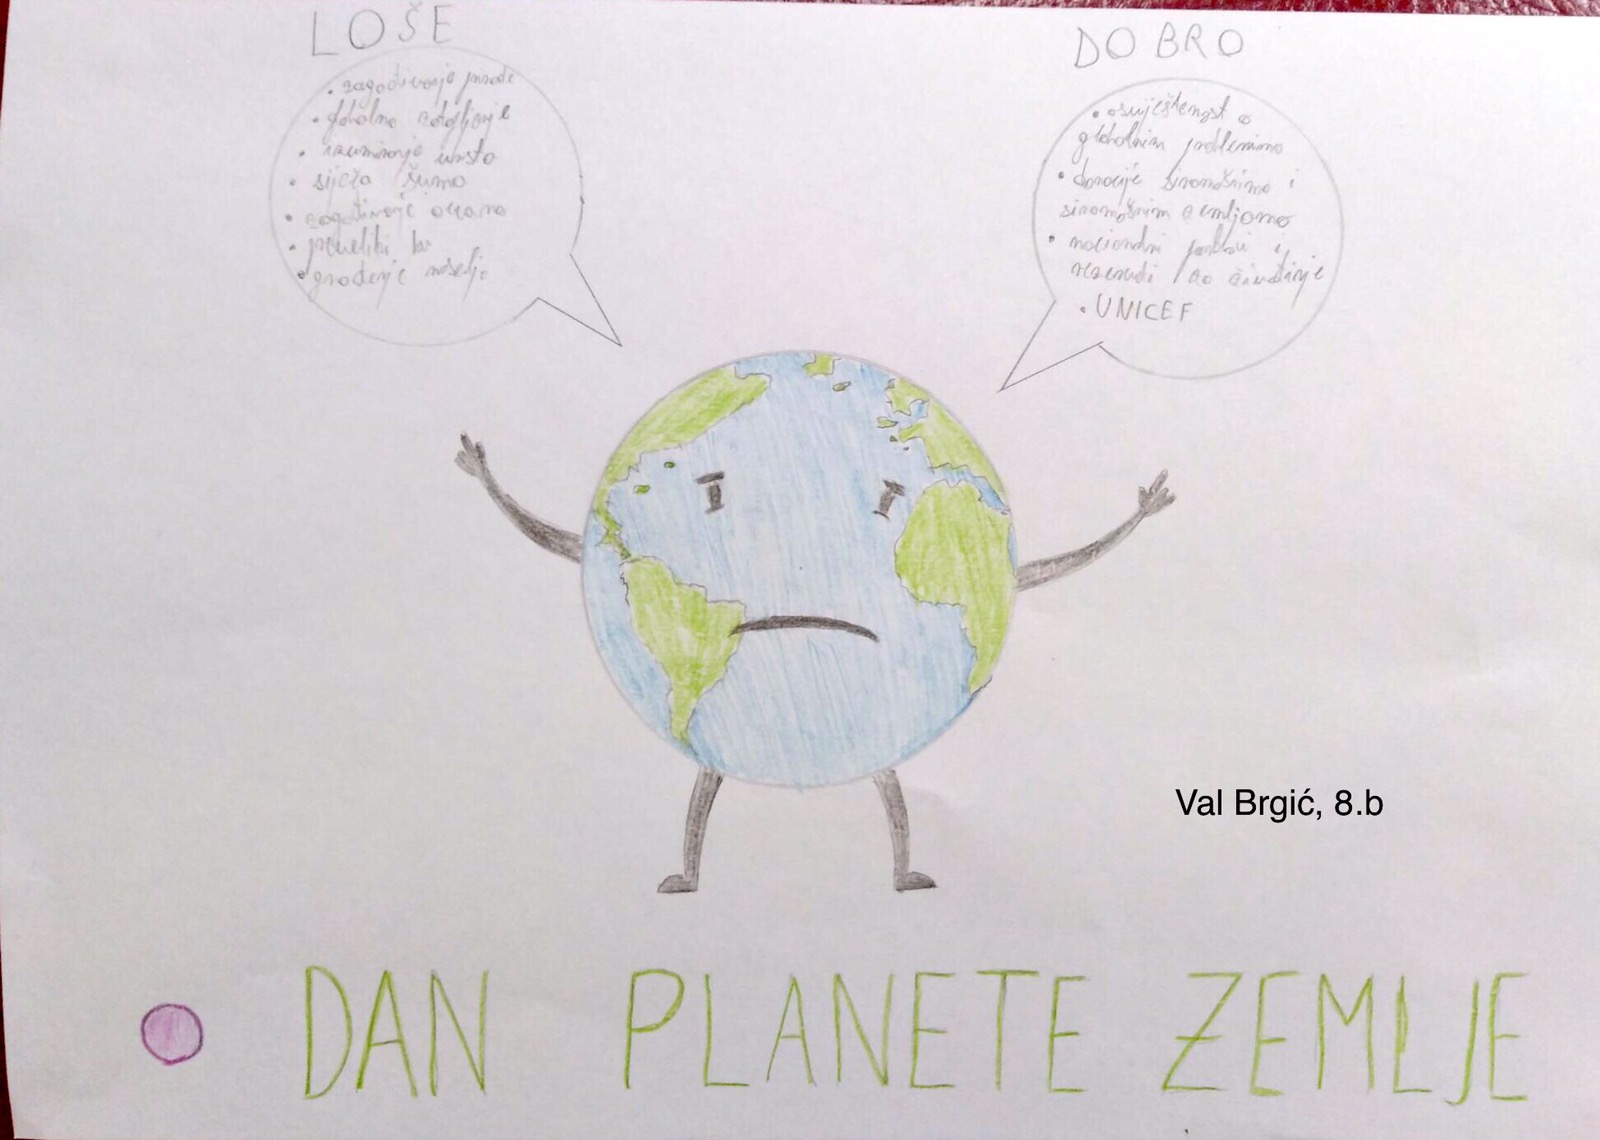 LOŠE
• zagađivanje prirode
• globalno zatopljenje
• izumiranje vrsta
• sječa šuma
• zagađivanje oceana
• preveliki
• građenje naselja
DOBRO
• osviještenost o
globalnim problemima
• donacije siromašnima i
siromašnim zemljama
• nacionalni parkovi i
rezervati za životinje
• UNICEF
Val Brgić, 8.b
DAN PLANETE ZEMLJE